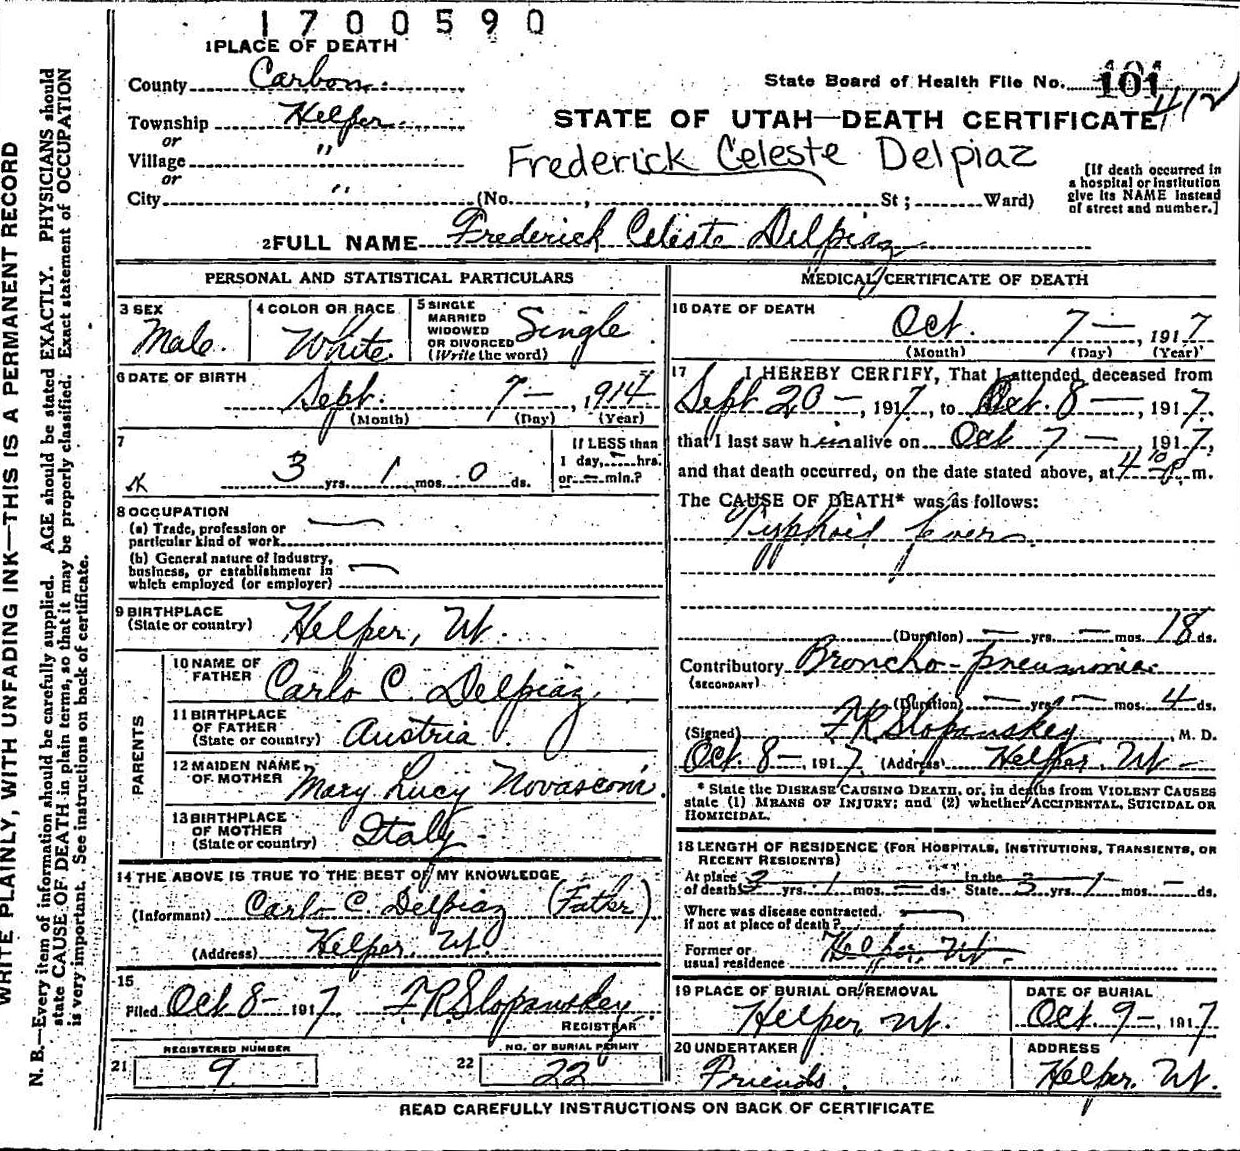 1700590
1 PLACE OF DEATH
County Carbon
State Board of Health File No. 101
412
Township Helper
or
STATE OF UTAH—DEATH CERTIFICATE
Village "
or
Frederick Celeste Delpiaz
City "
(No. , St; Ward)
[If death occurred in
a hospital or institution
give its NAME instead
of street and number.]
2 FULL NAME Frederick Celeste Delpiaz
PERSONAL AND STATISTICAL PARTICULARS
3 SEX
Male
4 COLOR OR RACE
White
5 SINGLE
MARRIED
WIDOWED
OR DIVORCED
(Write the word)
Single
6 DATE OF BIRTH
Sept. 7 — , 1914
(Month) (Day) (Year)
7
3 yrs. 1 mos. 0 ds.
If LESS than
1 day, hrs.
or min.?
8 OCCUPATION
(a) Trade, profession or
particular kind of work —
(b) General nature of industry,
business, or establishment in
which employed (or employer) —
9 BIRTHPLACE
(State or country) Helper, Ut.
PARENTS
10 NAME OF
FATHER Carlo C. Delpiaz
11 BIRTHPLACE
OF FATHER
(State or country) Austria
12 MAIDEN NAME
OF MOTHER Mary Lucy Novasconi
13 BIRTHPLACE
OF MOTHER
(State or country) Italy
14 THE ABOVE IS TRUE TO THE BEST OF MY KNOWLEDGE
(Informant) Carlo C. Delpiaz (Father)
(Address) Helper, Ut.
15
Filed Oct 8 - 1917 F R Slopanskey
REGISTRAR
REGISTERED NUMBER
21 9
NO. OF BURIAL PERMIT
22 22
MEDICAL CERTIFICATE OF DEATH
16 DATE OF DEATH
Oct. 7 — , 1917
(Month) (Day) (Year)
17 I HEREBY CERTIFY, That I attended deceased from
Sept 20 — , 1917, to Oct. 8 — , 1917,
that I last saw h im alive on Oct 7 — , 1917,
and that death occurred, on the date stated above, at 4 10 P. m.
The CAUSE OF DEATH* was as follows:
Typhoid fever
(Duration) — yrs. — mos. 18 ds.
Contributory Broncho-pneumonia
(SECONDARY)
(Duration) — yrs. — mos. 4 ds.
(Signed) F R Slopanskey, M. D.
Oct. 8 — , 1917 (Address) Helper, Ut —
* State the DISEASE CAUSING DEATH, or, in deaths from VIOLENT CAUSES
state (1) MEANS OF INJURY; and (2) whether ACCIDENTAL, SUICIDAL OR
HOMICIDAL.
18 LENGTH OF RESIDENCE (FOR HOSPITALS, INSTITUTIONS, TRANSIENTS, OR
RECENT RESIDENTS)
At place
of death 3 yrs. 1 mos. — ds. In the State 3 yrs. 1 — ds.
Where was disease contracted,
if not at place of death? —
Former or
usual residence Helper, Ut.
19 PLACE OF BURIAL OR REMOVAL
Helper, Ut.
DATE OF BURIAL
Oct 9 - , 1917
20 UNDERTAKER
Friends.
ADDRESS
Helper, Ut.
READ CAREFULLY INSTRUCTIONS ON BACK OF CERTIFICATE
WRITE PLAINLY, WITH UNFADING INK—THIS IS A PERMANENT RECORD
N. B.—Every item of information should be carefully supplied. AGE should be stated EXACTLY. PHYSICIANS should
state CAUSE OF DEATH in plain terms, so that it may be properly classified. Exact statement of OCCUPATION
is very important. See instructions on back of certificate.